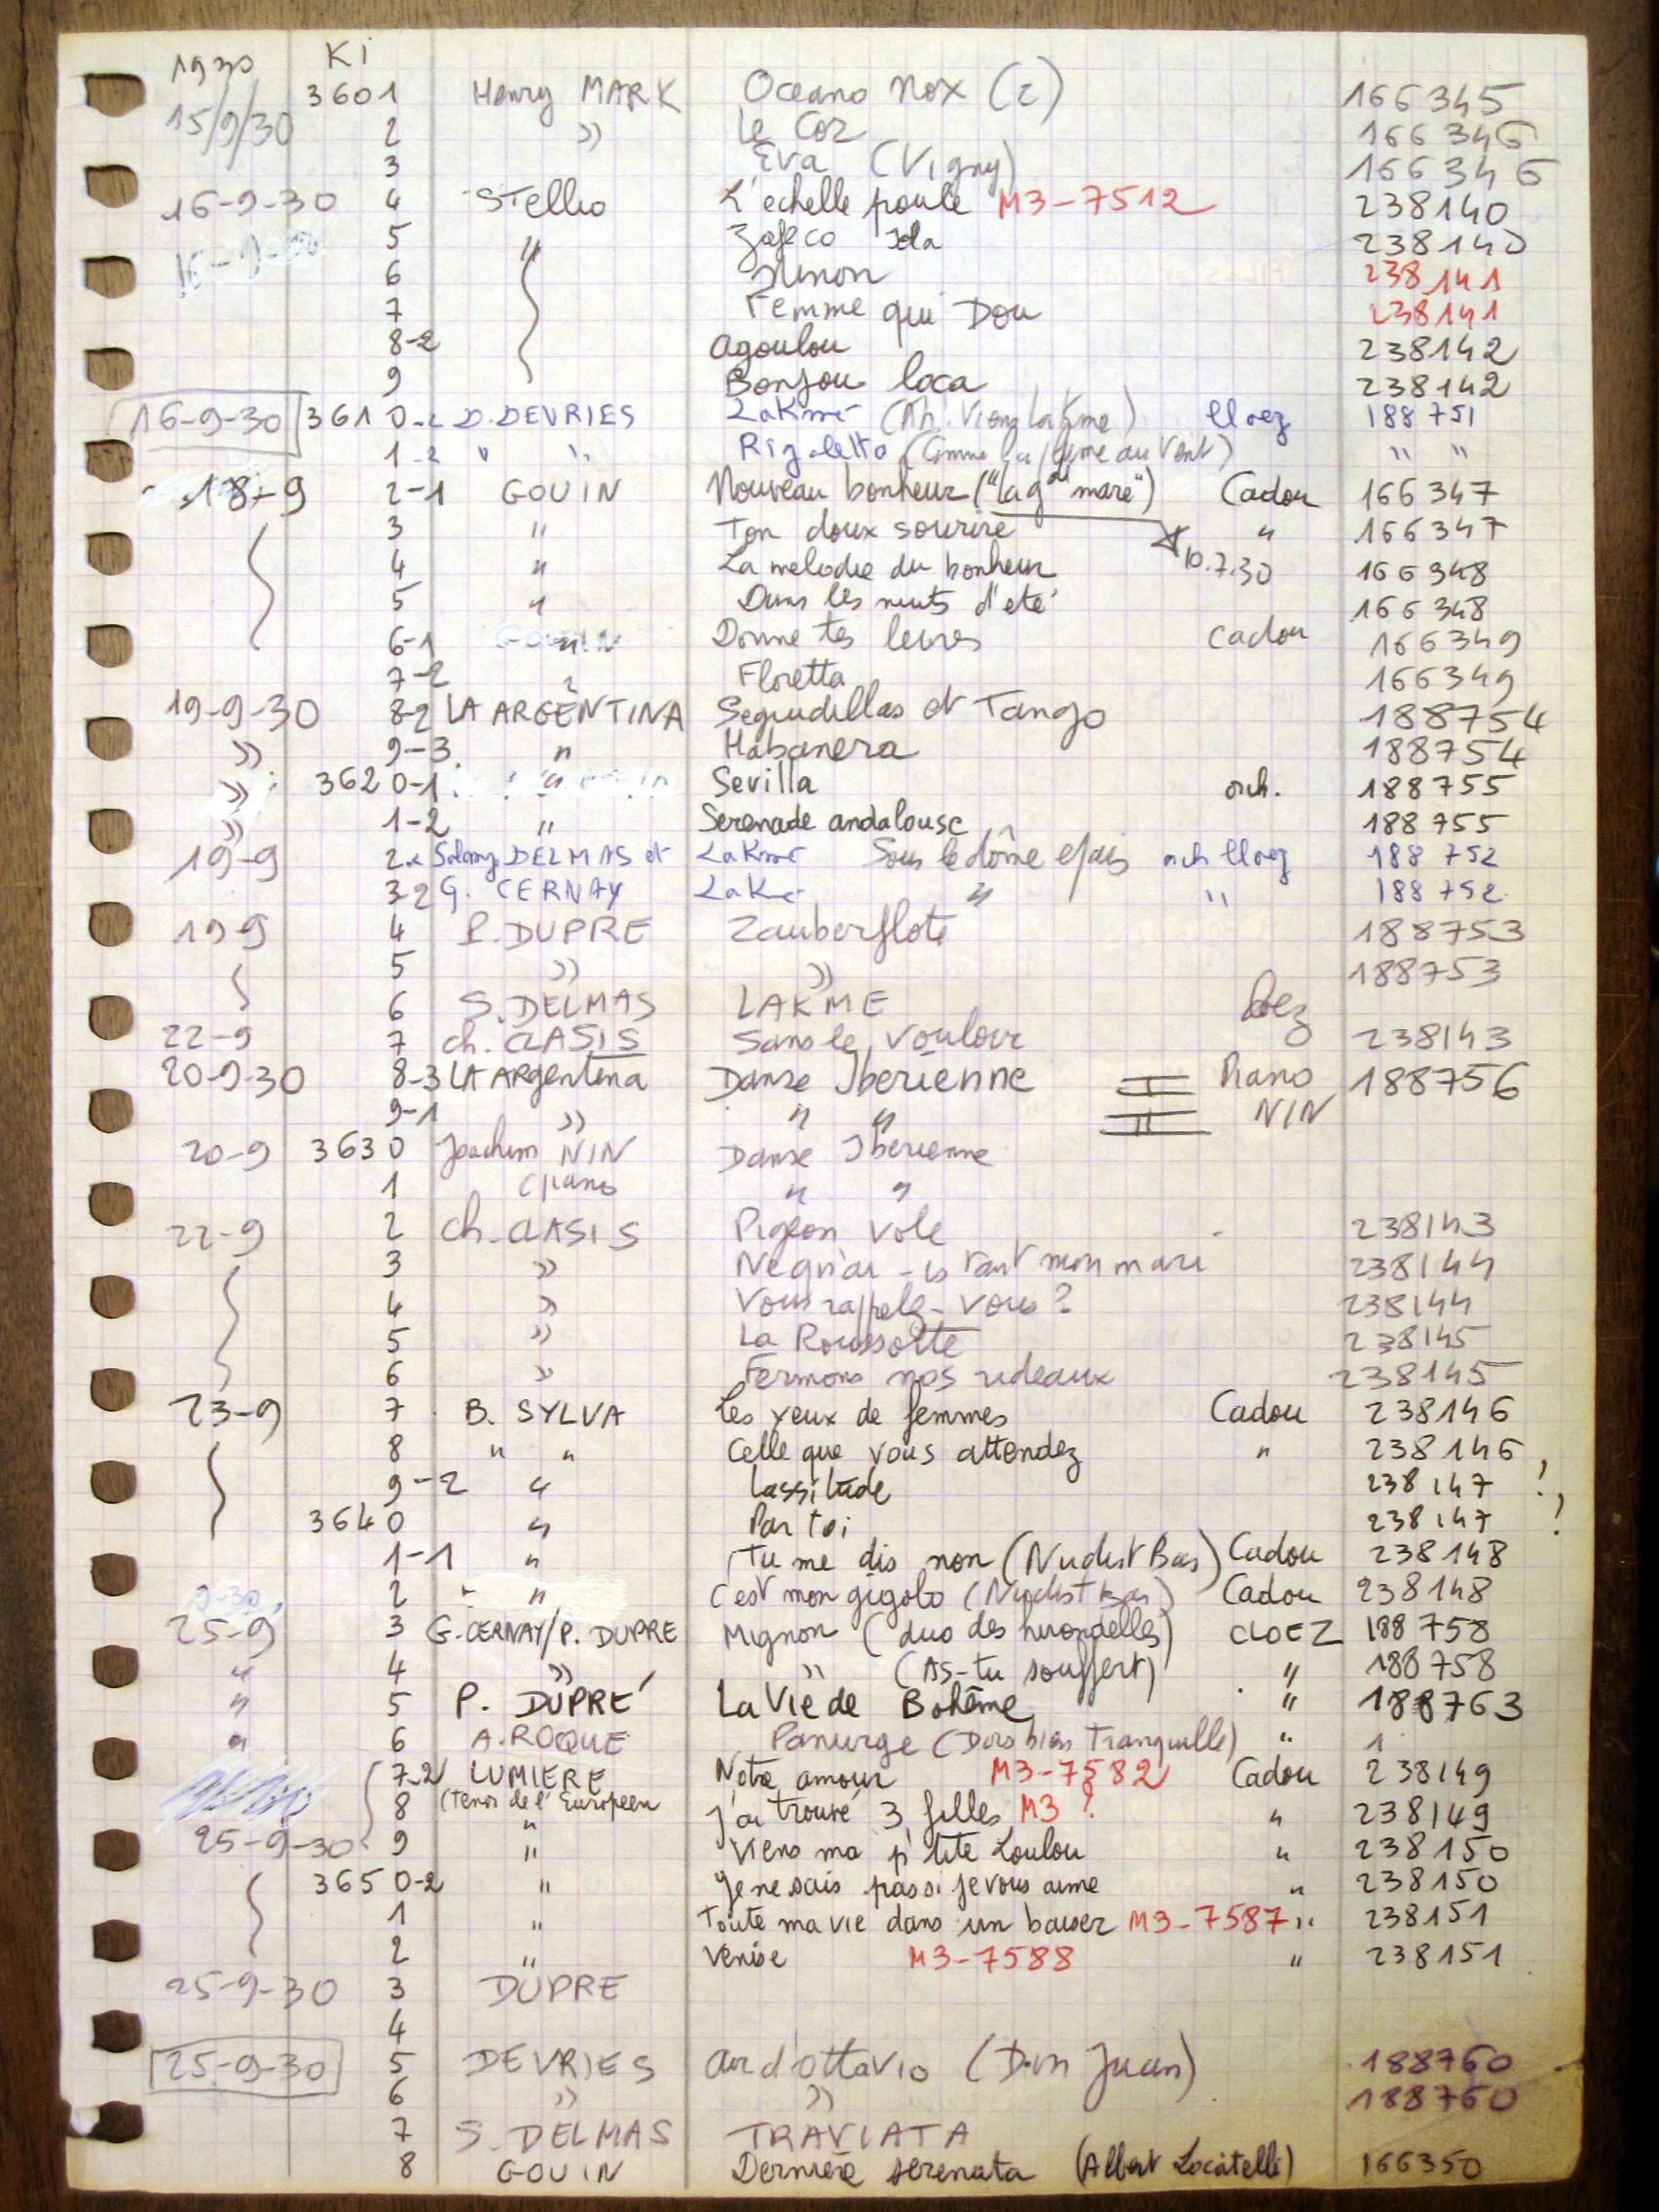 1930 Ki
15/9/30 3601 Henry MARK Oceano Nox (2) 166345
2 » Le Cor 166346
3 Eva (Vigny) 166346
16-9-30 4 STellio L'echelle poule M3-7512 238140
5 " Zafeco 238140
6 Ninon 238141
7 Femme qui Dou 238141
8-2 Agoulou 238142
9 Bonjou loca 238142
16-9-30 3610-2 D. DEVRIES LaKmé (Ah. Viens) Cloez 188751
1-2 " " Rigoletto (Comme la plume au Vent) " "
18-9 2-1 GOUIN Nouveau bonheur ("la gde mare") Cadou 166347
3 " Ton doux sourire " 166347
4 " La melodie du bonheur 10.7.30 166348
5 " Dans les nuits d'eté 166348
6-1 " Donne tes levres Cadou 166349
7-2 Floretta 166349
19-9-30 8-2 LA ARGENTINA Seguidillas et Tango 188754
» 9-3 " Habanera 188754
» 3620-1 " Sevilla orch. 188755
» 1-2 " Serenade andalouse 188755
19-9 2 DELMAS et LaKmé Sous le dôme epais orch Cloez 188752
3-2 G. CERNAY LaK " " 188752
19-9 4 P. DUPRE Zauberflote 188753
5 » » 188753
6 S. DELMAS LAKME Cloez
22-9 7 ch. CLASIS Sans le vouloir 238143
20-9-30 8-3 LA ARgentina Danse Iberienne I Piano 188756
9-1 » " " II NIN
20-9 3630 Joachim NIN Danse Iberienne
1 (piano " "
22-9 2 ch. CLASIS Pigeon vole 238143
3 » mon mari 238144
4 » Vous rappelez-vous? 238144
5 » La Roussotte 238145
6 » Fermons nos rideaux 238145
23-9 7 B. SYLVA Les yeux de femmes Cadou 238146
8 " " Celle que vous attendez " 238146
9-2 " Lassitude 238147 !
3640 " Par toi 238147 !
1-1 " Tu me dis non (Nudist Bar) Cadou 238148
2 " C'est mon gigolo (Nudist Bar) Cadou 238148
25-9 3 G. CERNAY/P. DUPRE Mignon (duo des hirondelles) CLOEZ 188758
" 4 » » (AS-tu souffert) " 188758
" 5 P. DUPRÉ La Vie de Bohême " 188763
" 6 A. ROQUE Panurge (Dors bien Tranquille) " 1
7-2 LUMIERE Notre amour M3-7582 Cadou 238149
8 (Tenor de l'Européen J'ai trouvé 3 filles M3 ? " 238149
25-9-30 9 " Viens ma p'tite Loulou " 238150
3650-2 " Je ne sais pas si je vous aime " 238150
1 " Toute ma vie dans un baiser M3-7587 " 238151
2 " Venise M3-7588 " 238151
25-9-30 3 DUPRE
4
25-9-30 5 DEVRIES air d'ottavio (Don Juan) 188760
6 » » 188760
7 S. DELMAS TRAVIATA
8 GOUIN Derniere serenata (Albert Locatelli) 166350